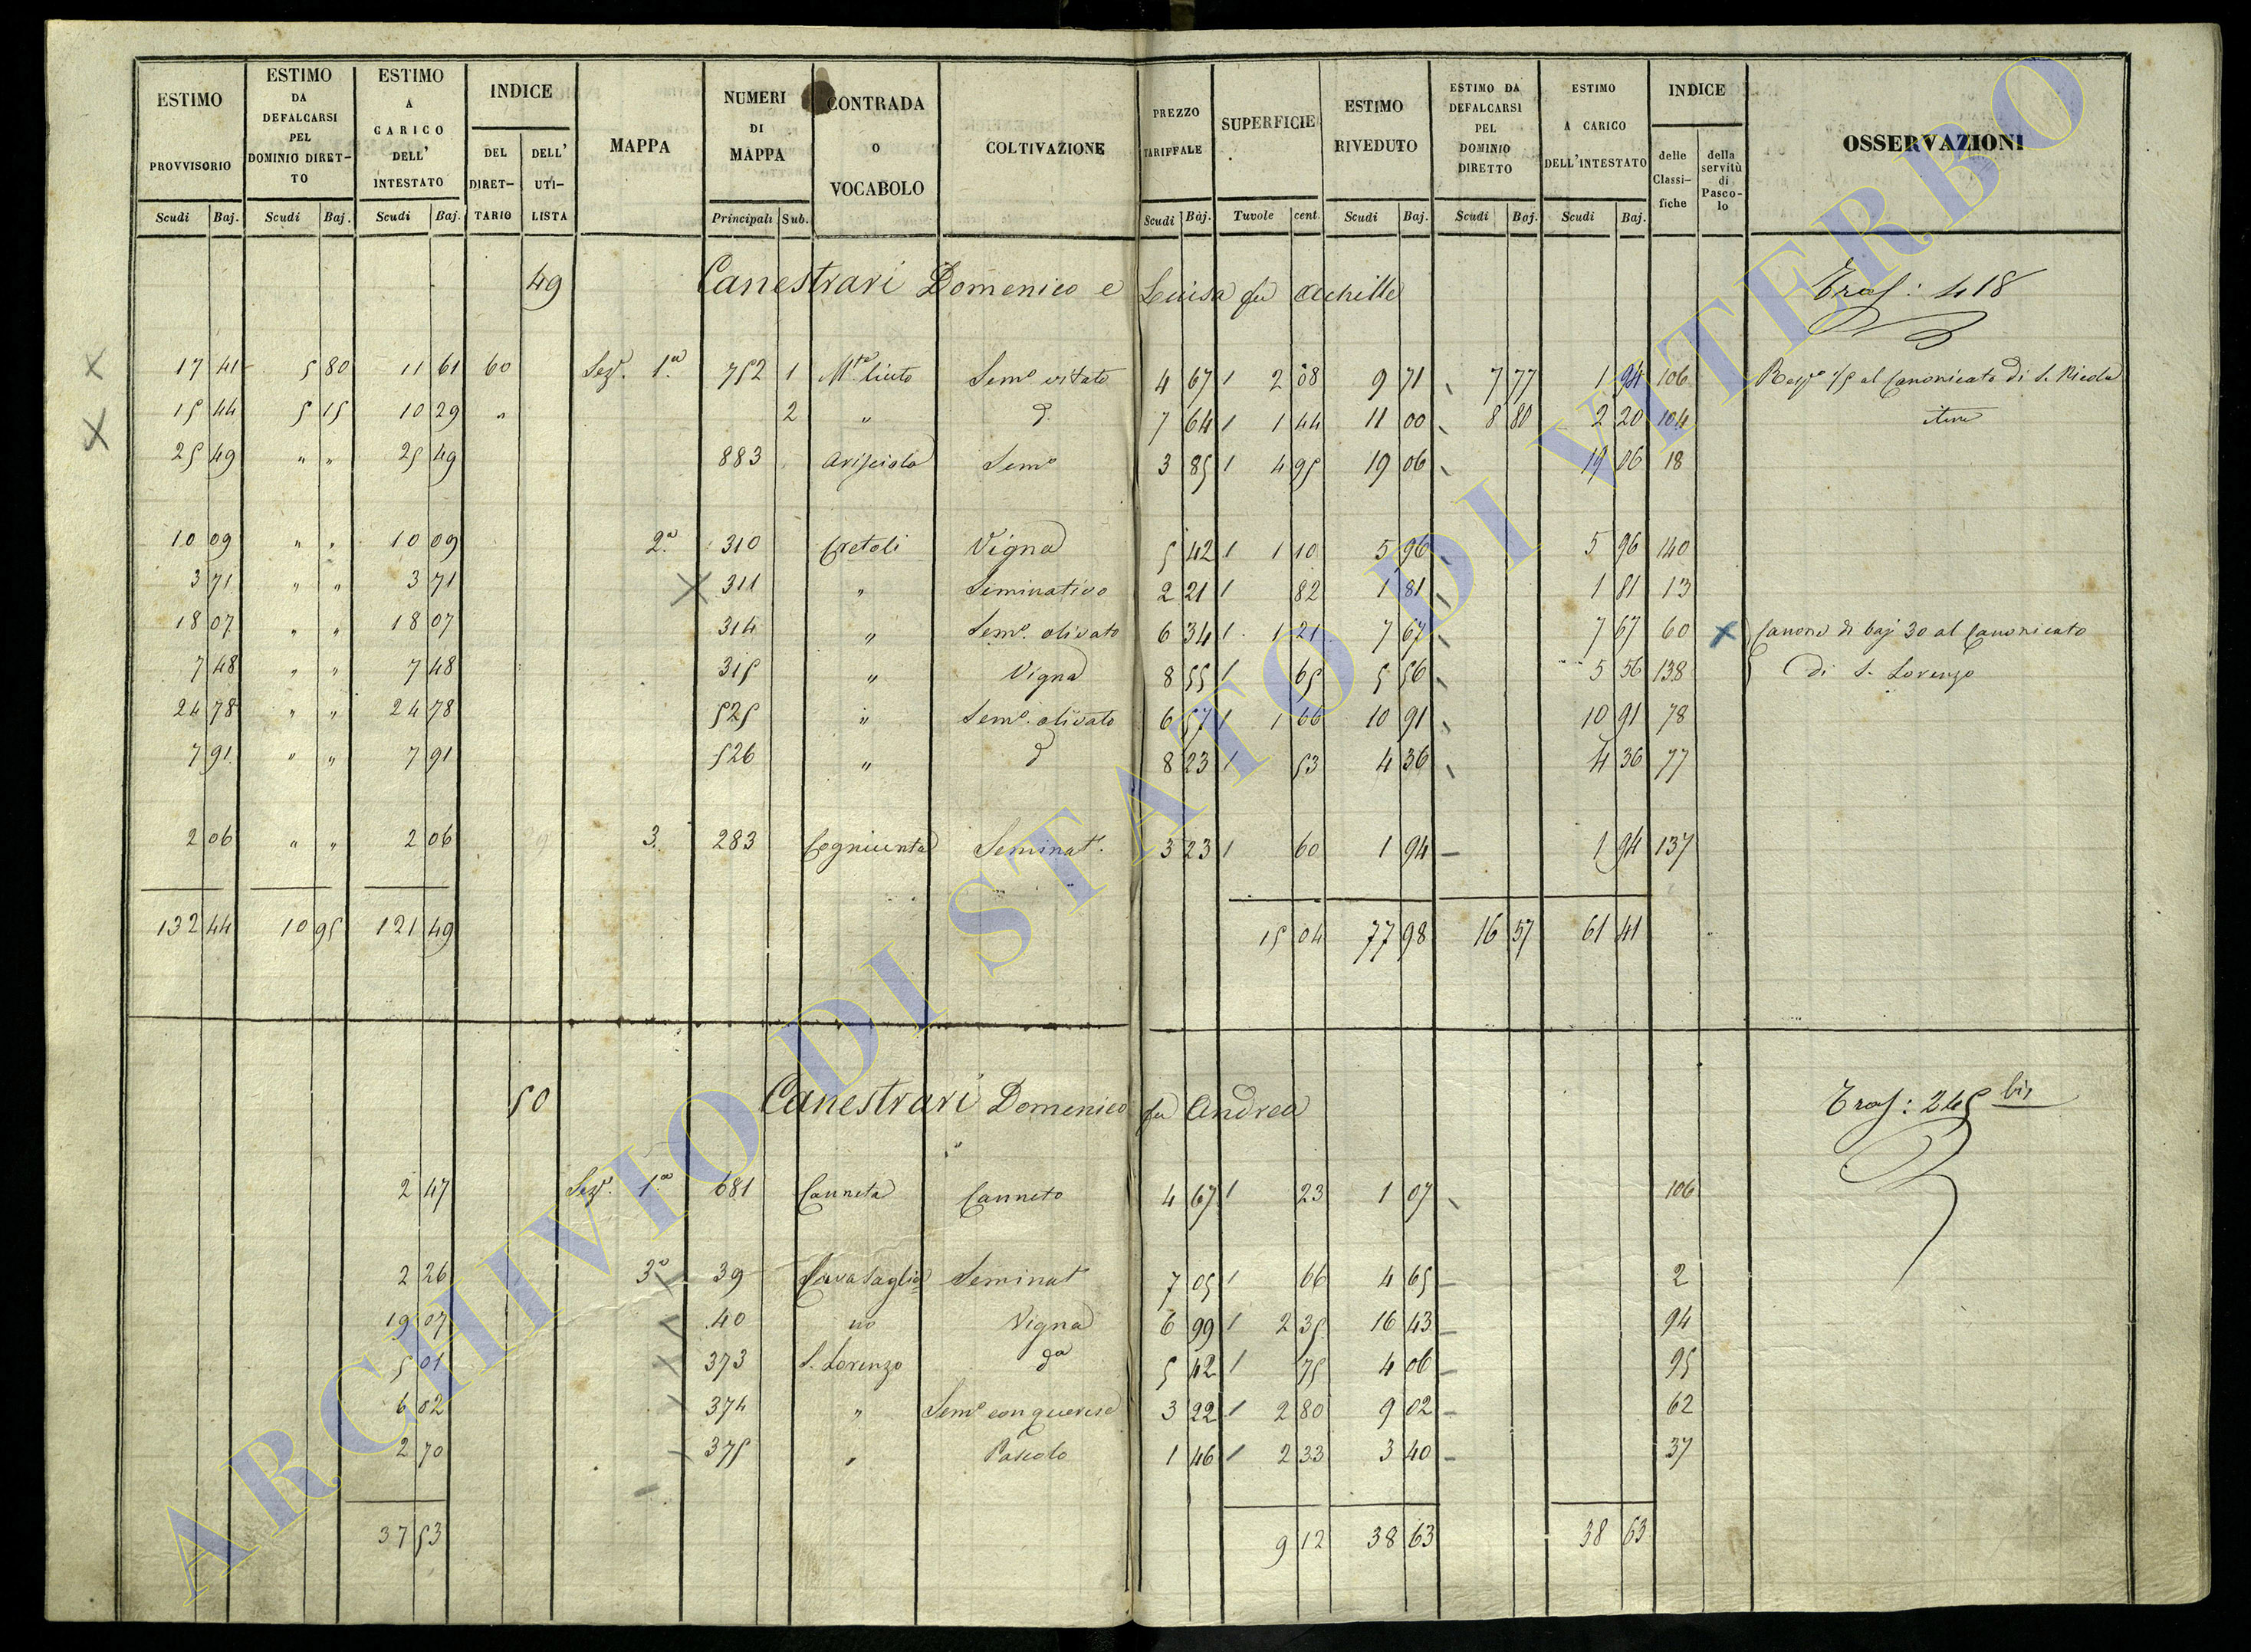 ESTIMO PROVVISORIO Scudi Baj.
ESTIMO DA DEFALCARSI PEL DOMINIO DIRET-TO Scudi Baj.
ESTIMO A CARICO DELL' INTESTATO Scudi Baj.
INDICE DEL DIRET-TARIO DELL' UTI-LISTA
MAPPA
NUMERI DI MAPPA Principali Sub.
CONTRADA O VOCABOLO
COLTIVAZIONE
PREZZO TARIFFALE Scudi Baj.
SUPERFICIE Tavole cent.
ESTIMO RIVEDUTO Scudi Baj.
ESTIMO DA DEFALCARSI PEL DOMINIO DIRETTO Scudi Baj.
ESTIMO A CARICO DELL'INTESTATO Scudi Baj.
INDICE delle Classi-fiche della servitù di Pasco-lo
OSSERVAZIONI
49 Canestrari Domenico e Luisa fu Achille Tras: 418
17 41 5 80 11 61 60 Sez. 1a 752 1 Sem° vitato 4 67 2 08 9 71 7 77 1 94 106 1/5 al Canonicato di S. Nicola
15 44 5 15 10 29 " 2 " d. 7 64 1 44 11 00 8 80 2 20 104
25 49 " " 25 49 883 Sem° 3 85 4 95 19 06 19 06 18
10 09 " " 10 09 2a 310 Cretoli Vigna 5 42 1 10 5 96 5 96 140
3 71 " " 3 71 311 " Seminativo 2 21 82 1 81 1 81 13
18 07 " " 18 07 314 " Sem°. olivato 6 34 1 21 7 67 7 67 60 Canone di baj 30 al Canonicato
7 48 " " 7 48 315 " Vigna 8 55 65 5 56 5 56 138 di S. Lorenzo
24 78 " " 24 78 525 " Sem°. olivato 6 57 1 66 10 91 10 91 78
7 91 " " 7 91 526 " d 8 23 53 4 36 4 36 77
2 06 " " 2 06 3. 283 Cogniunta Seminat. 3 23 60 1 94 1 94 137
132 44 10 95 121 49 15 04 77 98 16 57 61 41
50 Canestrari Domenico fu Andrea Tras: 245 bis
2 47 Sez. 1a 681 Canneta Canneto 4 67 23 1 07 106
2 26 3a 39 Seminat 7 05 66 4 65 2
19 07 40 Vigna 6 99 2 35 16 43 94
5 01 373 S. Lorenzo da 5 42 75 4 06 95
6 02 374 " Sem° con querce 3 22 2 80 9 02 62
2 70 375 " Pascolo 1 46 2 33 3 40 37
37 53 9 12 38 63 38 63
ARCHIVIO DI STATO DI VITERBO